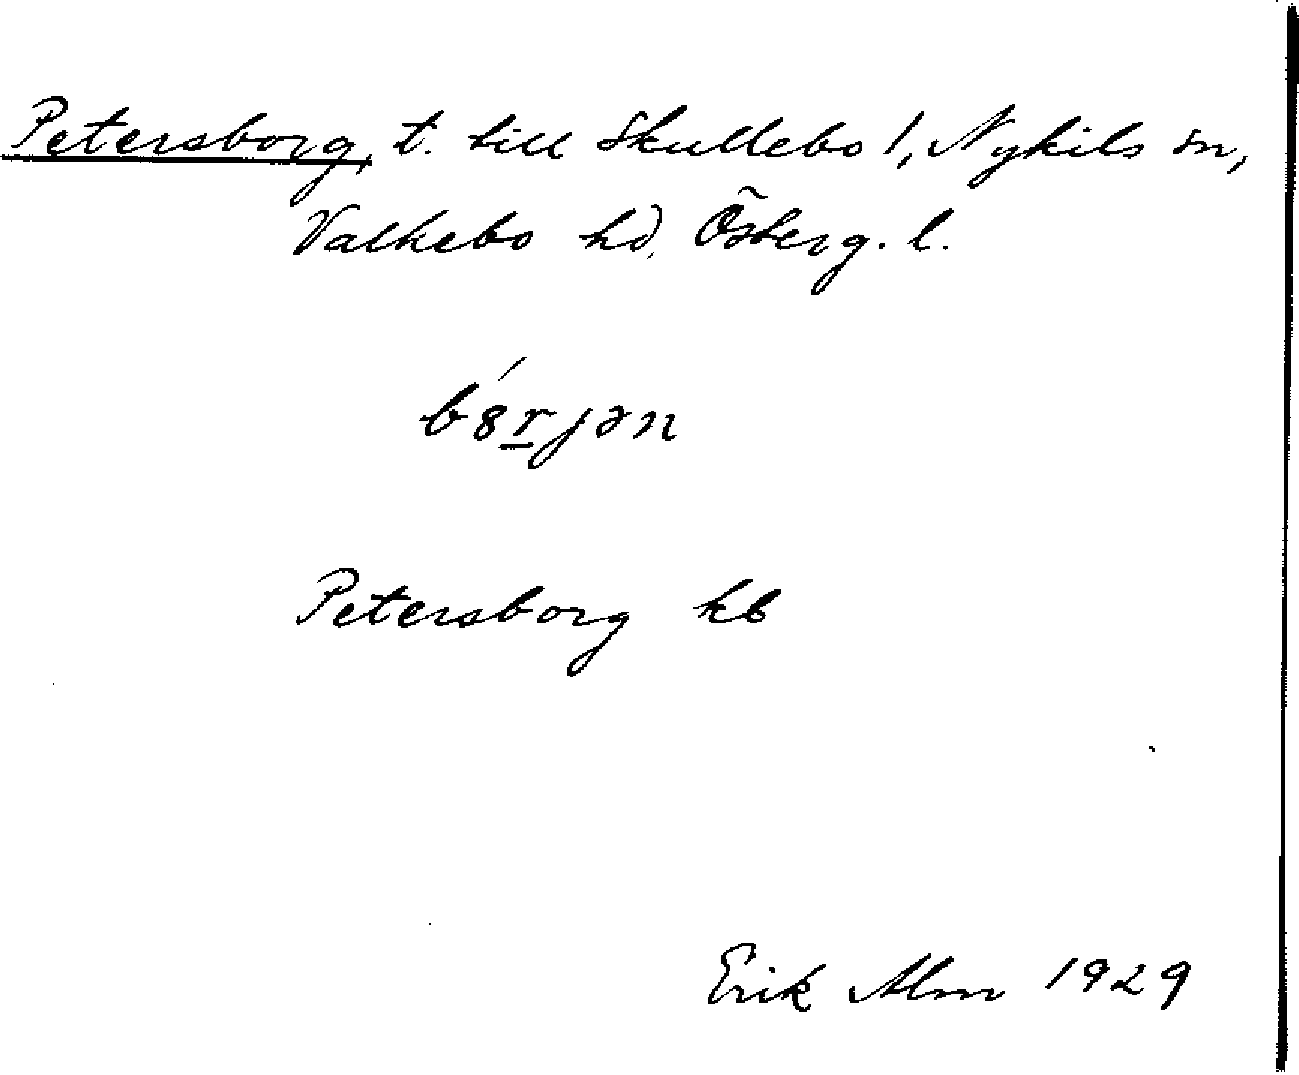 Petersborg, t. till Skullebo 1, Nykils sn,
Valkebo hd, Österg. l.
b8́rjən
Petersborg kb
Erik Alm 1929